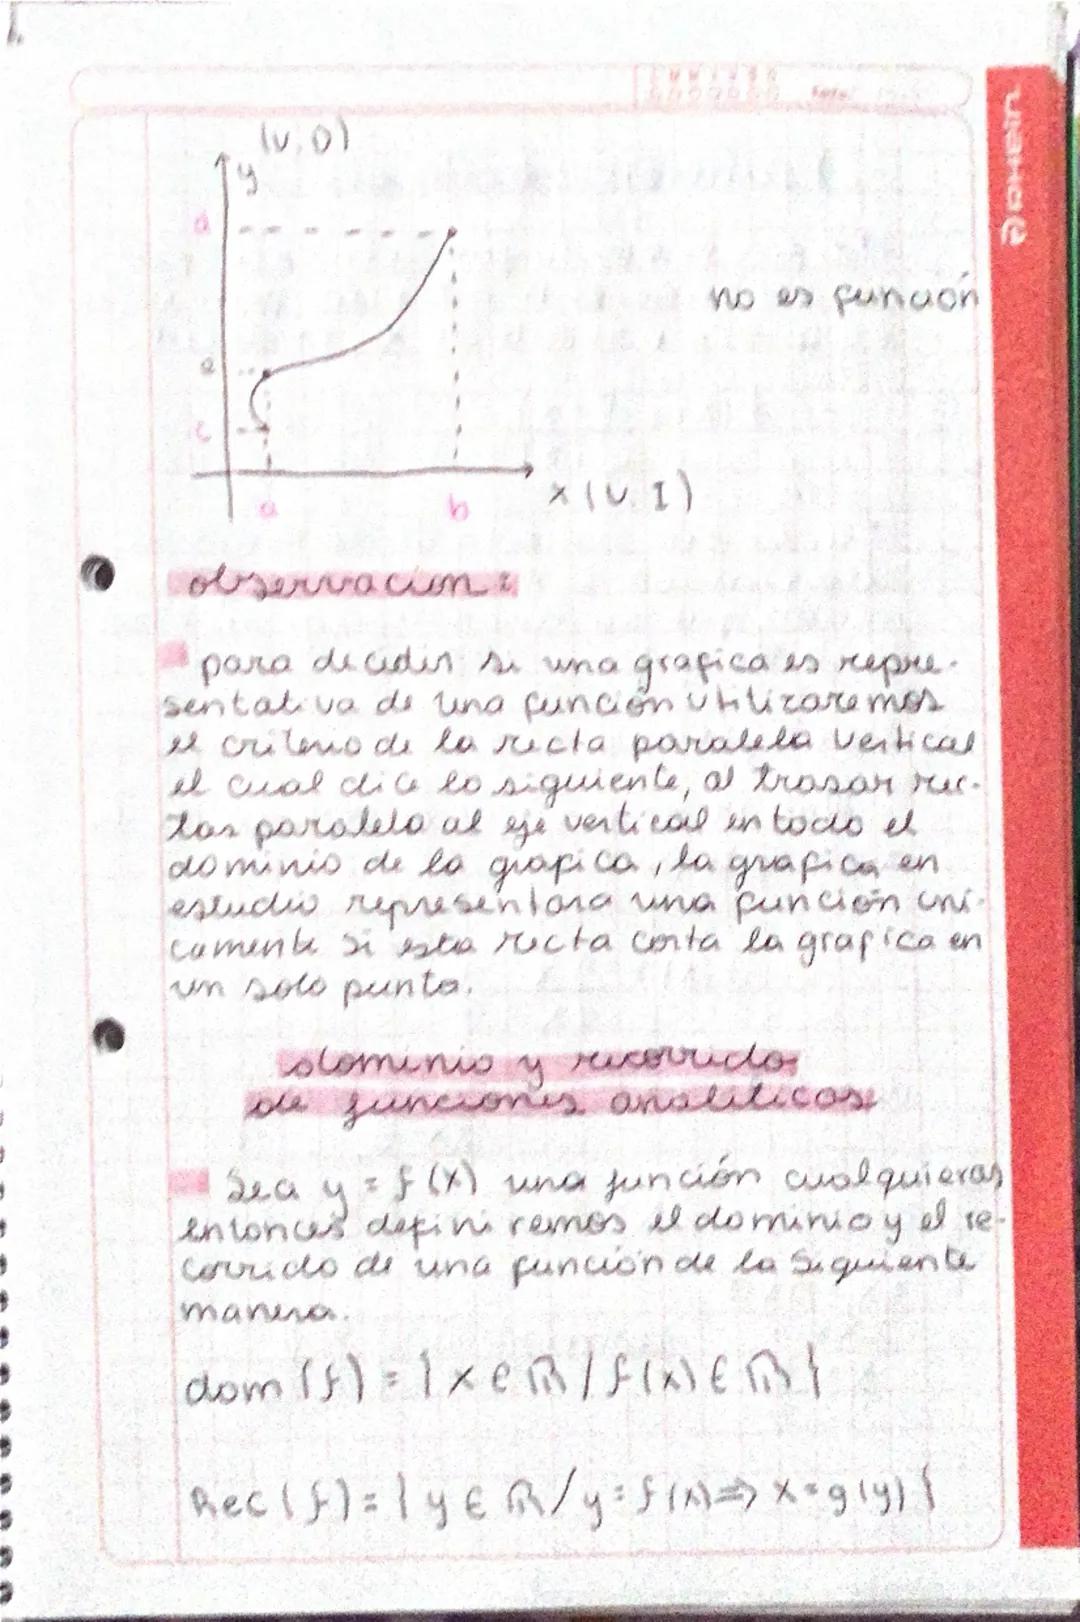 (v.D)
y
d
no es función
e
c
a
b
x (v.I)
observacion:
para decidir si una grafica es repre-
sentativa de una función utilizaremos
el criterio de la recta paralela vertical
el cual dice lo siguiente, al trasar rec-
tas paralela al eje vertical en todo el
dominio de la grafica, la grafica en
estudio representara una función uni-
camente si esta recta corta la grafica en
un solo punto.
dominio y recorrido
de funciones analiticas:
Sea y = f(x) una función cualquieras,
entonces definiremos el dominio y el re-
corrido de una función de la siguiente
manera.
dom (f) = { x ∈ ℝ / f(x) ∈ ℝ }
Rec (f) = { y ∈ ℝ / y = f(x) ⇒ x = g(y) }